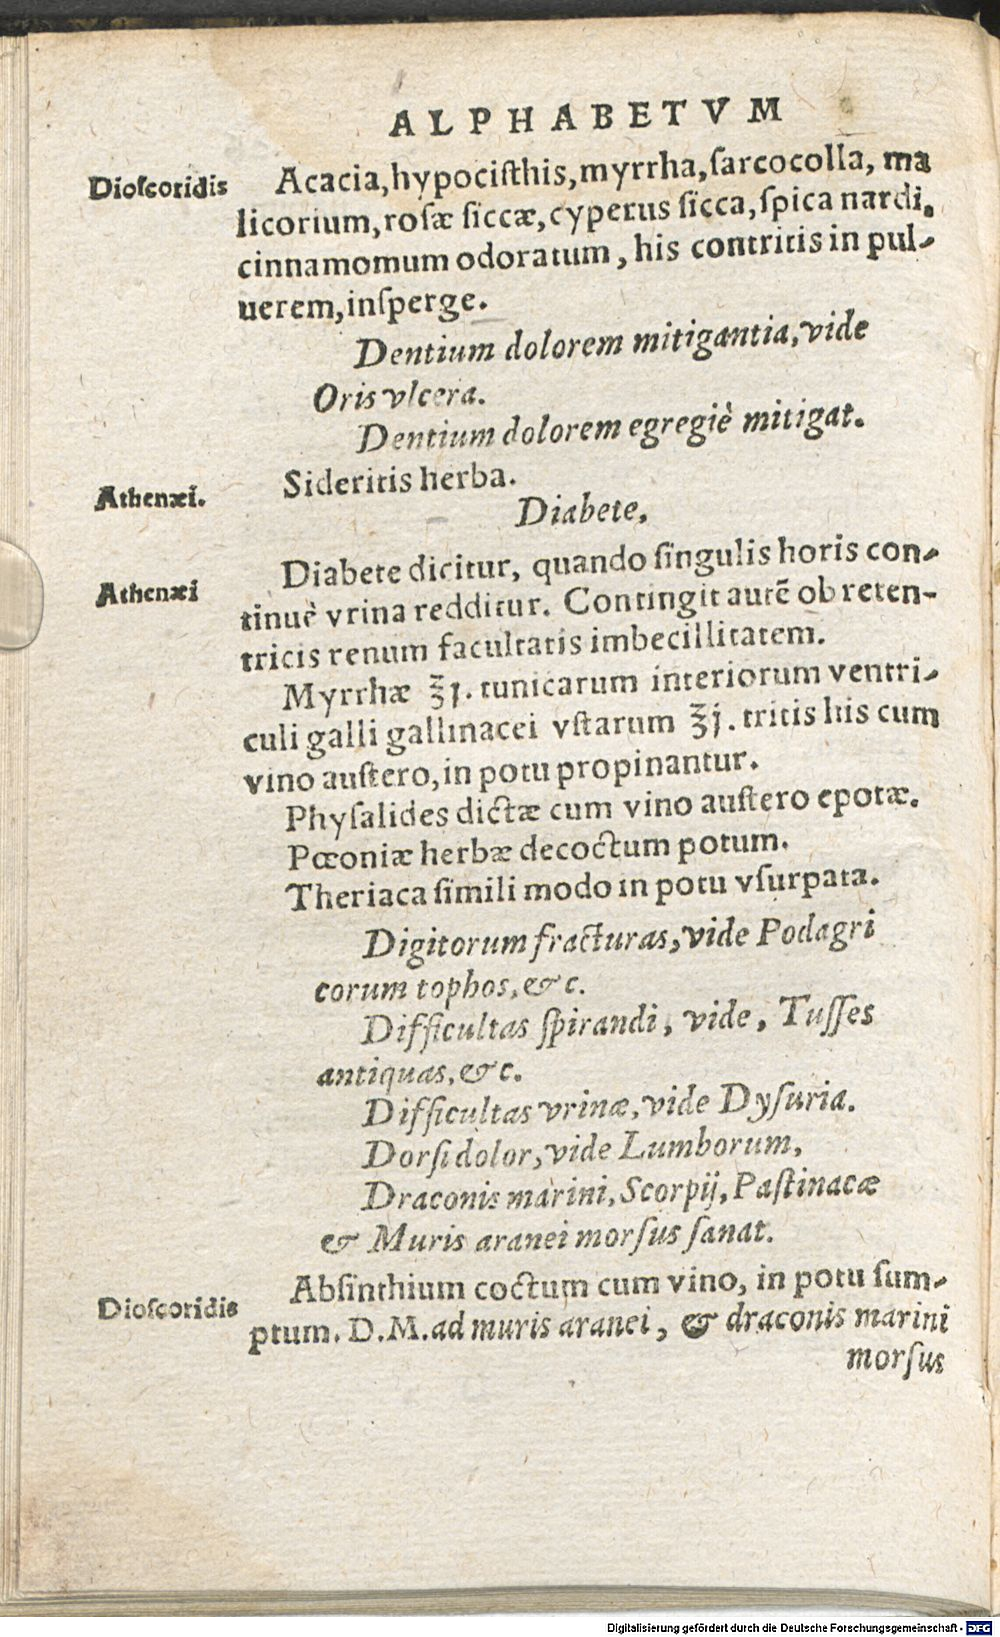 ALPHABETVM
Dioſcoridis
Acacia, hypociſthis, myrrha, ſarcocolla, ma
licorium, roſæ ſiccæ, cyperus ſicca, ſpica nardi,
cinnamomum odoratum, his contritis in pul-
uerem, inſperge.
Dentium dolorem mitigantia, vide
Oris vlcera.
Dentium dolorem egregiè mitigat.
Athenæi.
Sideritis herba.
Diabete,
Athenæi
Diabete dicitur, quando ſingulis horis con-
tinuè vrina redditur. Contingit autē ob reten-
tricis renum facultatis imbecillitatem.
Myrrhæ ʒj. tunicarum interiorum ventri-
culi galli gallinacei vſtarum ʒj. tritis his cum
vino auſtero, in potu propinantur.
Phyſalides dictæ cum vino auſtero epotæ.
Pœoniæ herbæ decoctum potum.
Theriaca ſimili modo in potu vſurpata.
Digitorum fracturas, vide Podagri
corum tophos, &c.
Difficultas ſpirandi, vide, Tuſſes
antiquas, &c.
Difficultas vrinæ, vide Dyſuria.
Dorſi dolor, vide Lumborum,
Draconis marini, Scorpij, Paſtinacæ
& Muris aranei morſus ſanat.
Dioſcoridis
Abſinthium coctum cum vino, in potu ſum-
ptum. D.M. ad muris aranei, & draconis marini
morſus
Digitalisierung gefördert durch die Deutsche Forschungsgemeinschaft - DFG